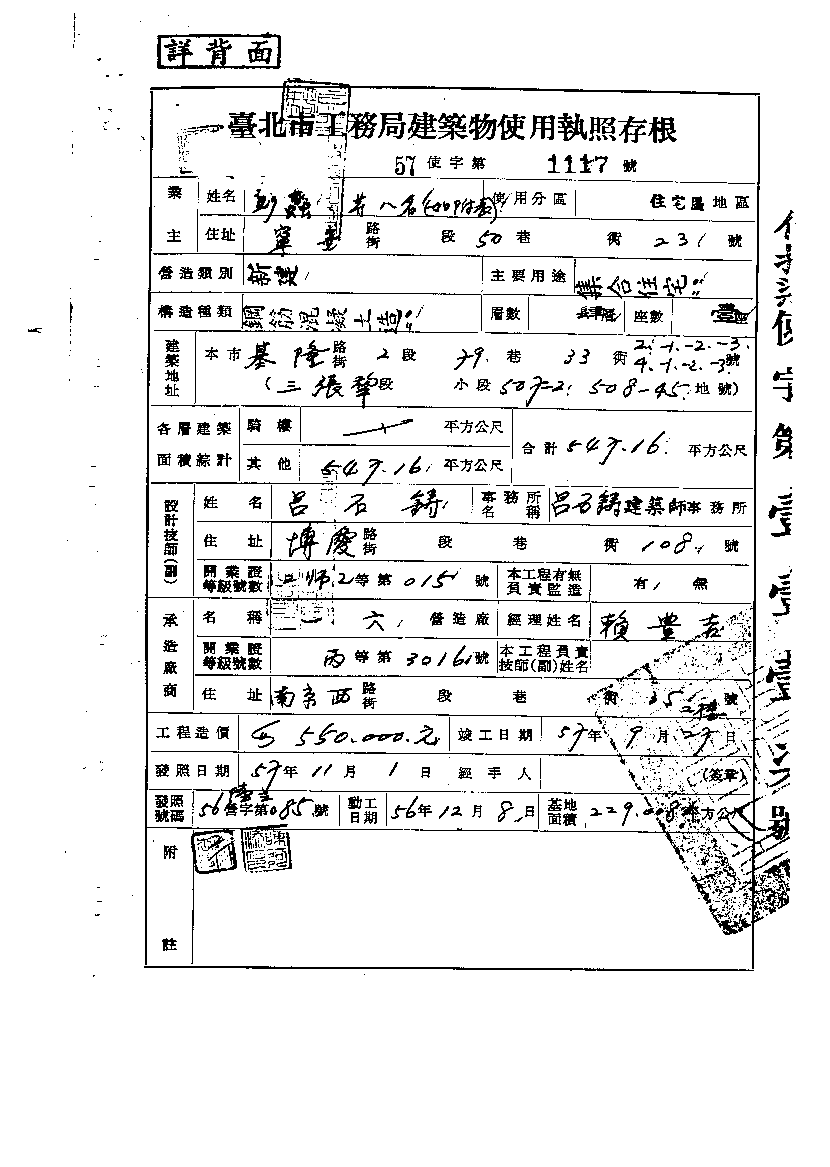 詳背面
臺北市工務局建築物使用執照存根
57 使字第 1117 號
業主 姓名 等八名(如附表) 使用分區 住宅區地區
住址 寧安 路街 段 50 巷 衖 231 號
營造類別 新建 主要用途 集合住宅
構造種類 鋼筋混凝土造 層數 肆層 座數 壹座
建築地址 本市 基隆 路街 2 段 79 巷 33 衖 2.-1.-2.-3. 4.-1.-2.-3. 號
(三張犂段 小段 507-2. 508-45. 地號)
各層建築面積綜計 騎樓 平方公尺 合計 547.16 平方公尺
其他 547.16 平方公尺
設計技師(副) 姓名 呂石鑄 事務所名稱 呂石鑄建築師事務所
住址 博愛 路街 段 巷 衖 108 號
開業證等級號數 工師2等第 015 號 本工程有無負責監造 有 無
承造廠商 名稱 一六 營造廠 經理姓名 賴豐吉
開業證等級號數 丙等第 3016 號 本工程負責技師(副)姓名
住址 南京西 路街 段 巷 衖 號 2樓
工程造價 550.000.元 竣工日期 57年 9月 27日
發照日期 57年 11月 1日 經手人 (簽章)
發照號碼 56營字第085號 動工日期 56年 12月 8日 基地面積 229.008 平方公尺
附註
使字第壹壹壹
號